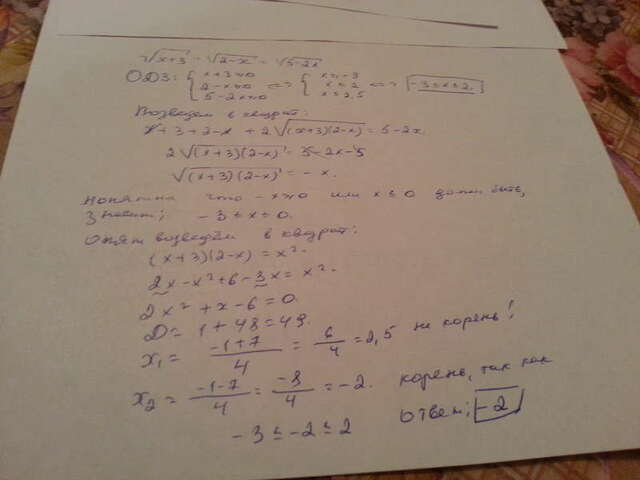 √x+3 - √2-x = √5-2x
ОДЗ: { x+3≥0 <=> { x≥-3 <=> -3≤x≤2
2-x≥0 x≤2
5-2x≥0 x≤2,5
Возведем в квадрат:
x+3+2-x + 2√(x+3)(2-x) = 5-2x
2√(x+3)(2-x) = 5-2x-5
√(x+3)(2-x) = -x.
что -x≥0 или x≤0 должн быть,
Значит; -3≤x≤0.
Опят возведём в квадрат:
(x+3)(2-x) = x².
2x-x²+6-3x = x².
2x²+x-6=0.
D= 1+48=49.
x₁= -1+7/4 = 6/4 =2,5 не корень!
x₂= -1-7/4 = -8/4 = -2. корень, так как
-3≤-2≤2 ответ; -2